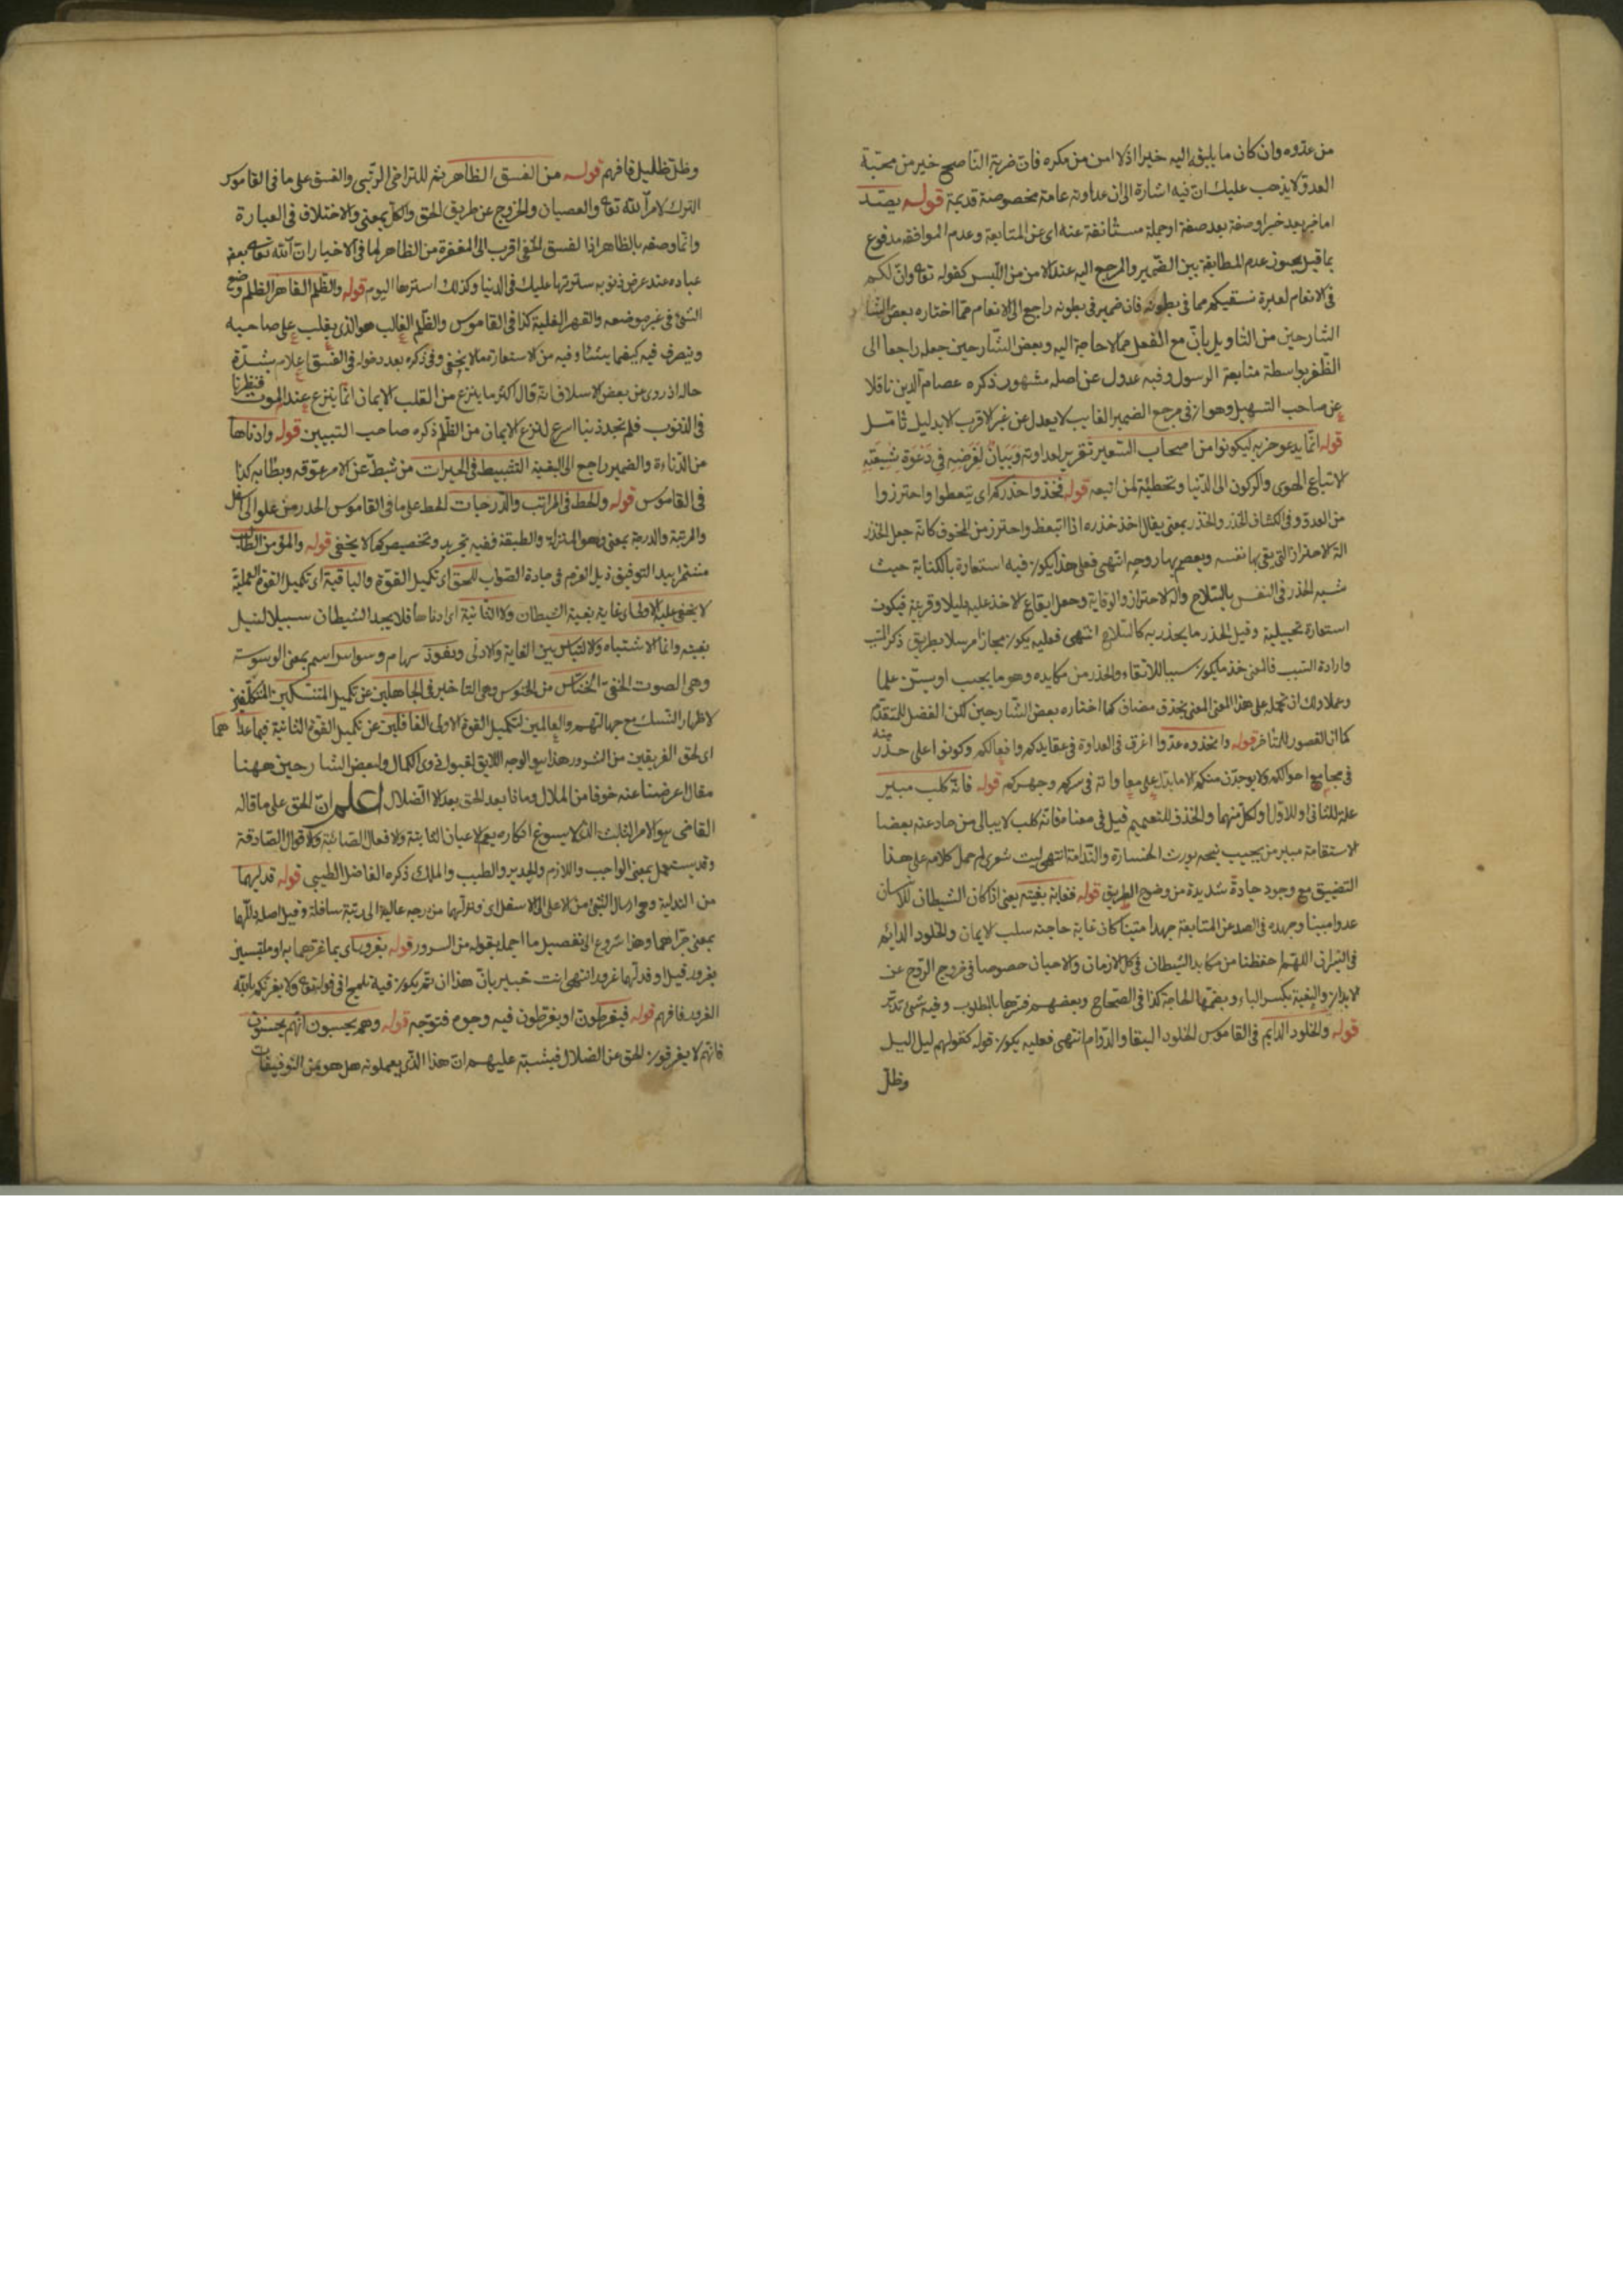 من عدوه وان كان ما يلقوه اليه خيرا اذ لا امن من مكره فان ضربة الناصح خير من محبة
العدو لا يذهب عليك ان فيه اشارة الى ان عداوته عامة مخصوصة قديمة قوله يصد
اما خبر بعد خبر او صفة بعد صفة او جملة مستانفة عنه اى عن المتابعة وعدم الموافقة مدفوع
بما قيل يجوز عدم المطابقة بين الضمير والمرجع اليه عند الامن من اللبس كقوله تعالى وان لكم
فى الانعام لعبرة نسقيكم مما فى بطونه فان ضمير فى بطونه راجع الى الانعام مما اختاره بعض
الشارحين من التاويل بان مع الفعل مما لا حاجة اليه وبعض الشارحين جعله راجعا الى
الظفر بواسطة متابعة الرسول وفيه عدول عن اصله مشهور ذكره عصام الدين ناقلا
عن صاحب التسهيل وهو ان فى مرجع الضمير الغايب لا يعدل عن غير الاقرب الا بدليل تامل
قوله انما يدعو حزبه ليكونوا من اصحاب السعير تقرير لعداوته وبيان لغرضه فى دعوة شيعته
لاتباع الهوى والركون الى الدنيا وتخطئة لمن اتبعه قوله فخذوا حذركم اى تيعظوا واحترزوا
من العدو وفى الكشاف الحذر والحذر بمعنى يقال اخذ حذره اذا تيعظ واحترز من المخوف كانه جعل الحذر
الة الاحتراز التى يقى بها نفسه ويعصم بها روحه انتهى فعلى هذا يكون فيه استعارة بالكناية حيث
شبه الحذر فى النفس بالسلاح والة الاحتراز والوقاية وجعل ايقاع الاخذ عليه دليلا وقرينة فيكون
استعارة تخييلية وقيل الحذر ما يحذر به كالسلاح انتهى فعليه يكون مجازا مرسلا بطريق ذكر المسبب
وارادة السبب فالمعنى خذ ما يكون سببا للاتقاء والحذر من مكايده وهو ما يجب او يسن علما
وعملا ولك ان تحمله على هذا المعنى بحذف مضاف كما اختاره بعض الشارحين لكن الفضل للمتقدم
كما ان القصور للمتاخر قوله واتخذوه عدوا اغرق فى العداوة فى عقايدكم وافعالكم وكونوا على حذر منه
فى مجامع احوالكم ولا يوجدن منكم الا ما يدل على معاداته فى سركم وجهركم قوله فانه كلب مبير
علة للثانى وللاول ولكل منهما والحذف للتعميم قيل فى معناه فانه كلب لا يبالى من حاد عنه بعضا
لاستقامة مبير من يجيب نبحه يورث الخسارة والندامة انتهى ليت شعرى لم حمل كلامه على هذا
التضييق مع وجود جادة شديدة من وضوح الطريق قوله فغاية بغيته يعنى اذا كان الشيطان للانسان
عدوا مبينا وجهده فى الصد عن المتابعة جهدا متينا كان غاية حاجته سلب الايمان والخلود الدائم
فى النيران اللهم احفظنا من مكايد الشيطان فى كل الازمان والاحيان خصوصا فى خروج الروح عن
الابدان والبغية بكسر الباء وبضمها الحاجة كذا فى الصحاح وبعضهم فسرها بالمطلوب وفيه شئ تدبر
قوله والخلود الدايم فى القاموس الخلود البقا والدوام انتهى فعليه يكون قوله كقولهم ليل اليل
وظل
وظل ظليل فافهم قوله من الفسق الظاهر ثم للتراخى الرتبى والفسق على ما فى القاموس
الترك لامر الله تعالى والعصيان والخروج عن طريق الحق والكل بمعنى والاختلاف فى العبارة
وانما وصفه بالظاهر اذا الفسق الخفى اقرب الى المغفرة من الظاهر لما فى الاخبار ان الله تعالى
عباده عند عرض ذنوبه سترتها عليك فى الدنيا وكذلك استرها اليوم قوله والظلم القاهر الظلم وضع
الشئ فى غير موضعه والقهر الغلبة كذا فى القاموس والظلم الغالب هو الذى يغلب على صاحبه
ويتصرف فيه كيفما يشا وفيه من الاستعارة ما لا يخفى وفى ذكره بعد دخوله فى الفسق اعلام بشدة
حاله اذ روى عن بعض الاسلاف انه قال اكثر ما ينزع من القلب الايمان انما ينزع عند الموت فنظرنا
فى الذنوب فلم نجد ذنبا اسرع لنزع الايمان من الظلم ذكره صاحب التبيين قوله وادناها
من الدناءة والضمير راجع الى البغية التثبيط فى الخيرات من ثبطه عن الامر عوقه وبطا به كذا
فى القاموس قوله والحط فى المراتب والدرجات الحط على ما فى القاموس الحدر من علو الى سفل
والمرتبة والدرجة بمعنى وهو المنزلة والطبقة ففيه تجريد وتخصيص كما لا يخفى قوله والمؤمن الطالب
مشمرا بيد التوفيق ذيل العزم فى جادة الصواب للحق اى تكميل القوة والباقية اى تكميل القوة العملية
لا يخفى عليه الاولى اى غاية بغية الشيطان ولا الثانية اى ادناها فلا يجد الشيطان سبيلا لنيل
بغيته وانما الاشتباه والالتباس بين الغاية والادنى ونفوذ سهام وسواس اسم بمعنى الوسوسة
وهى الصوت الخفى الخناس من الخنوس وهى التاخير فى الجاهلين عن تكميل المتنسكين المتكلفين
لاظهار النسك مع جهالتهم والعالمين لتكميل القوة الاولى الغافلين عن تكميل القوة الثانية فيما عداهما
اى لحق الفريقين من الشرور هذا هو الوجه اللايق لقبول ذوى الكمال ولبعض الشارحين ههنا
مقال اعرضنا عنه خوفا من الملال وما ذا بعد الحق بعد الا الضلال اعلم ان الحق على ما قاله
القاضى هو الامر الثابت الذى لا يسوغ انكاره يعم الاعيان الثابتة والافعال الصائبة والاقوال الصادقة
وقد يستعمل بمعنى الواجب واللازم والجدير والطبيب والملك ذكره الفاضل الطيبى قوله قد دلهما
من التدلية وهى ارسال الشئ من الاعلى الى الاسفل اى فنزلهما من درجه عالية الى رتبة سافلة وقيل اصله دللهما
بمعنى جراهما وهذا شروع الى تفصيل ما اجمله بقوله من السرور قوله بغرور اى بما غرهما به او ملتبسين
بغرور قيل او فدلهما غرورا انتهى انت خبير بان هذا ان تم يكون فيه تلميح الى قوله تعالى ولا يغرنكم بالله
الغرور فافهم قوله فيفرطون او يفرطون فيه وجوه فتوجه قوله وهم يحسبون انهم يحسنون
فانهم لا يفرقون الحق عن الضلال فيشتبه عليهم ان هذا الذى يعملونه هل هو من التوفيقات